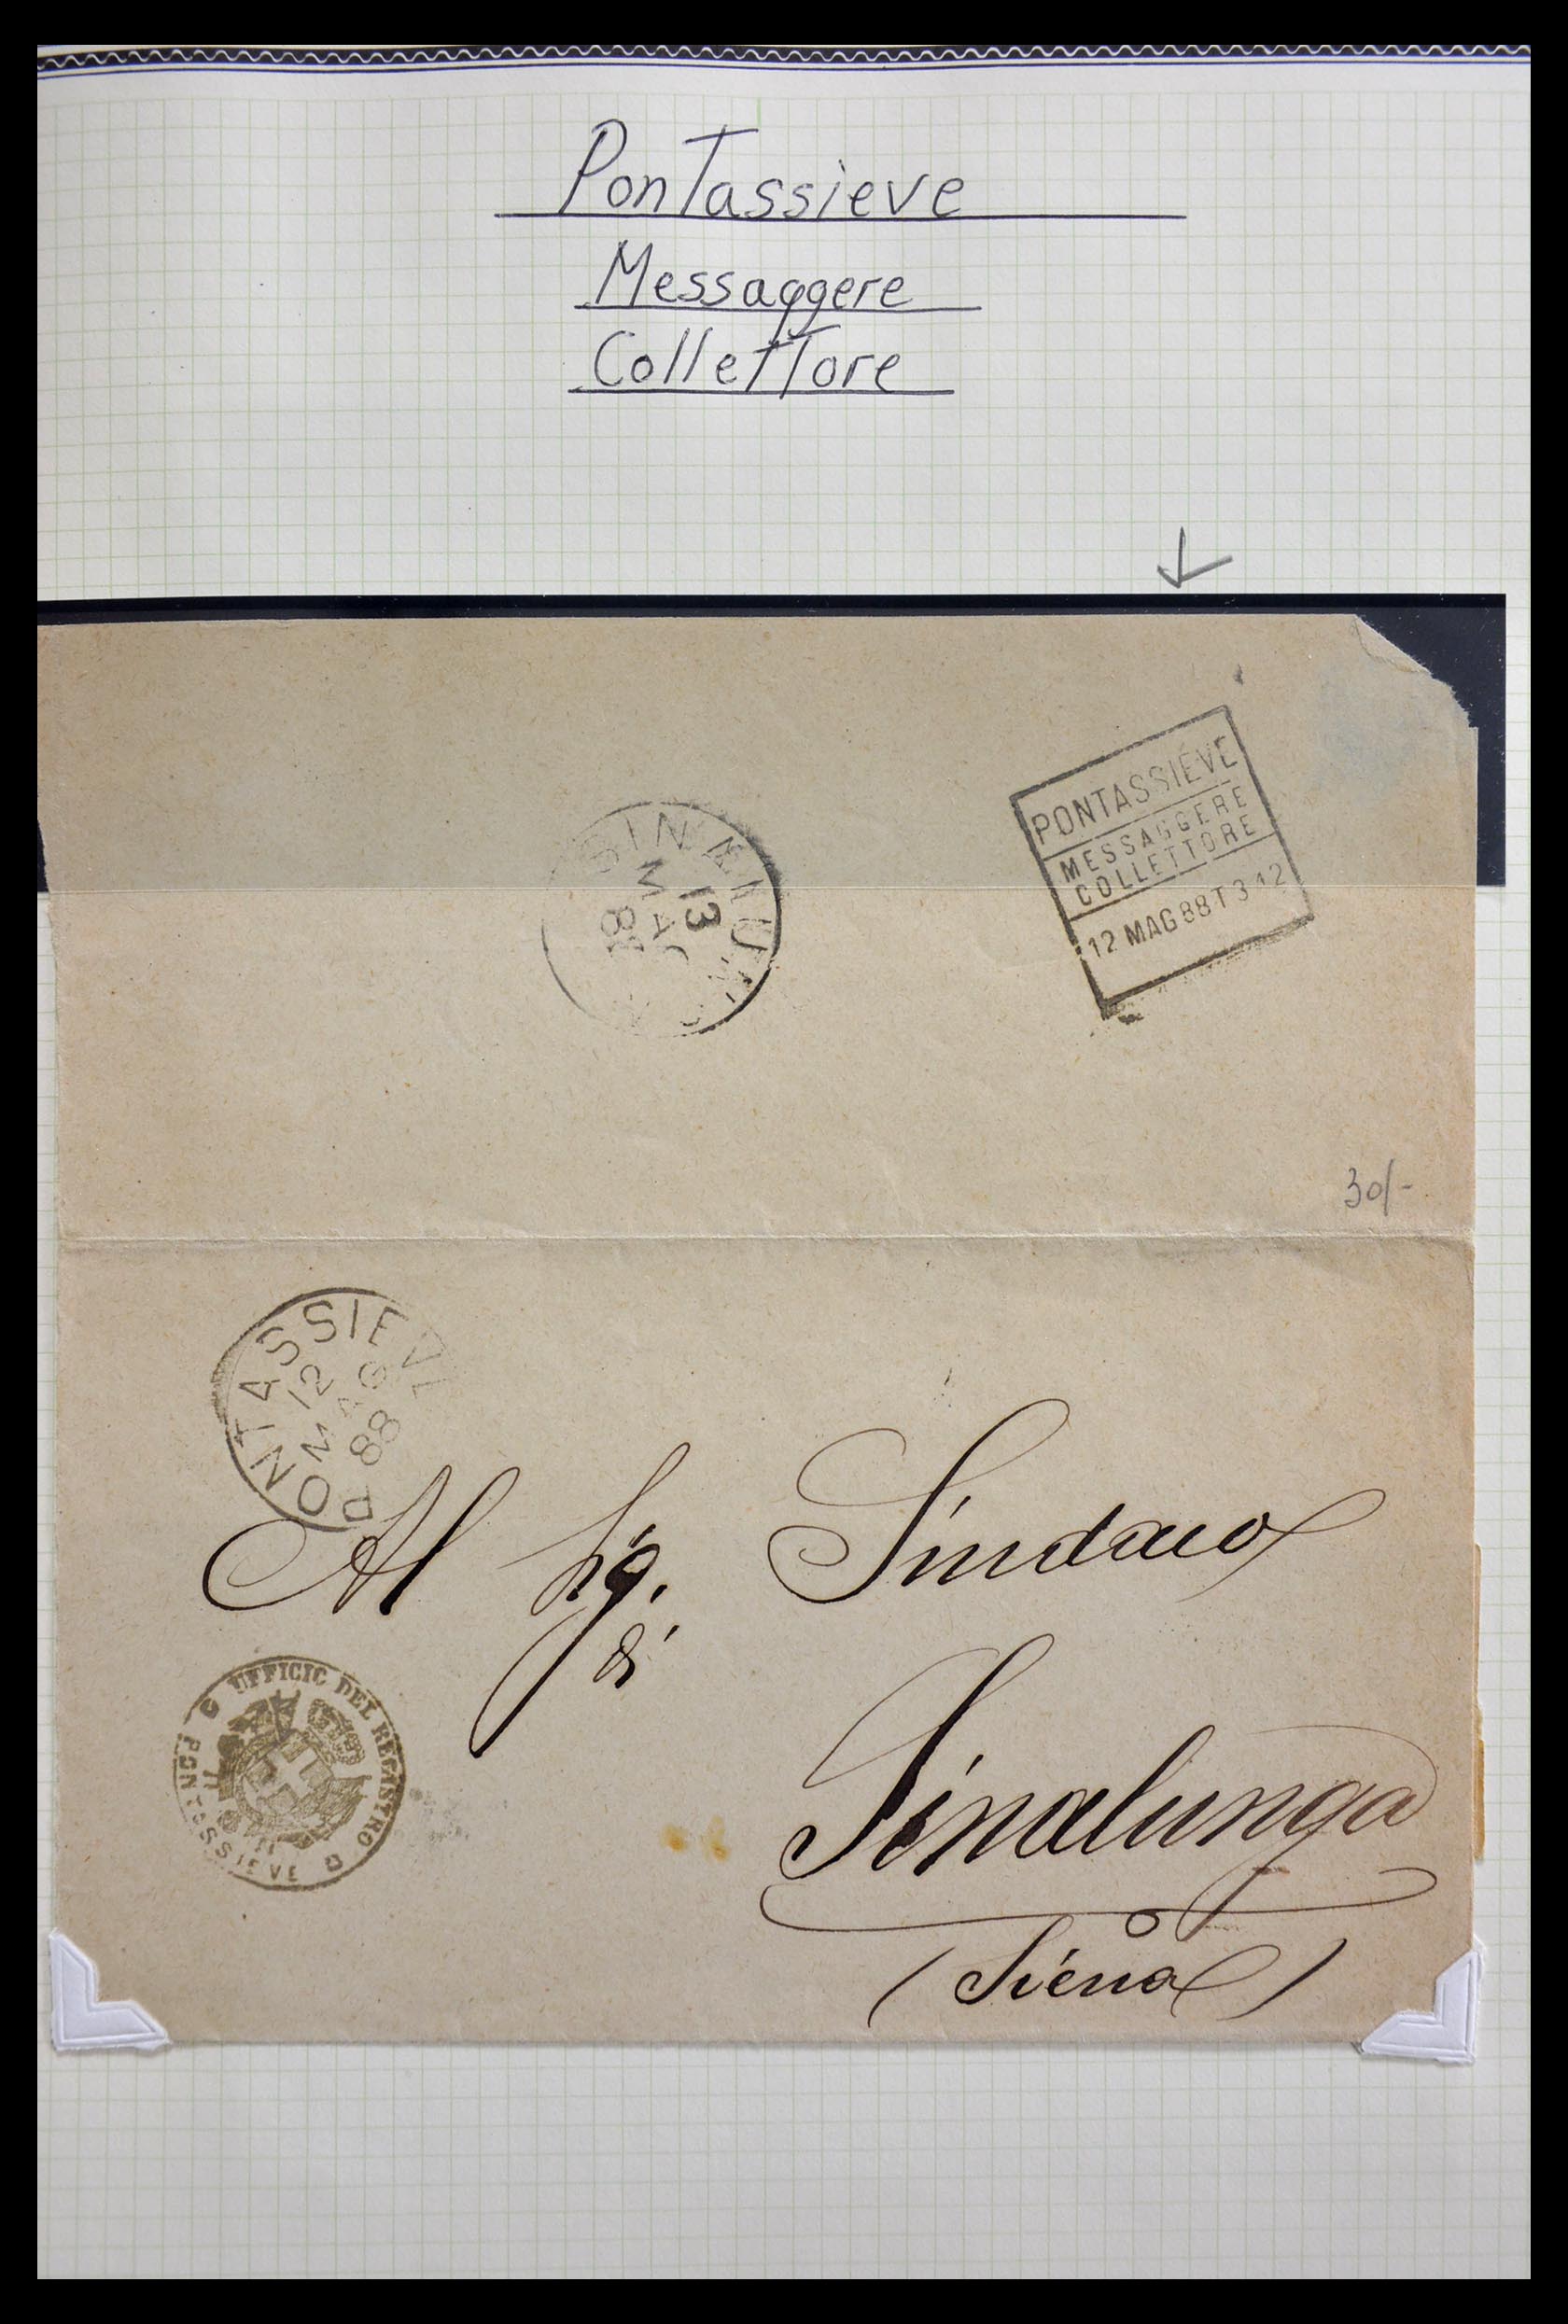 PonTassieve
Messaggere
ColletTore
PONTASSIEVE
MESSAGGERE
COLLETTORE
12 MAG 88 T 3 12
13
MAG
88
30/-
PONTASSIEVE
12
MAG
88
Al Sig. Sindaco
di
Sinalunga
(Siena)
UFFICIO DEL REGISTRO
PONTASSIEVE